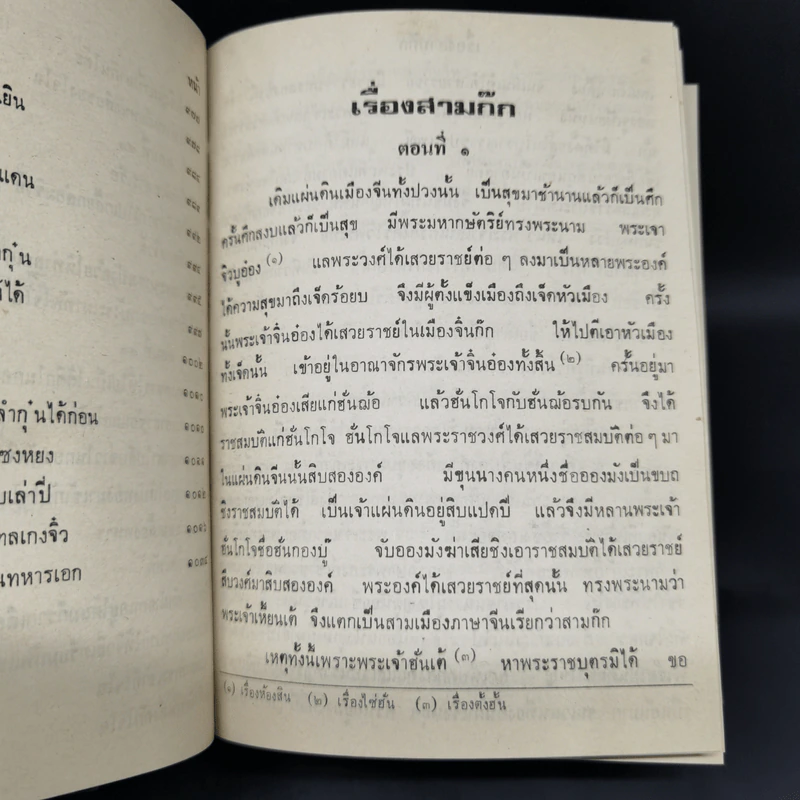 หน้า
เยิน
แดน
กุ๋น
ได้
๑๐๐๒
จำกุ๋นได้ก่อน
ซงหยง
บเล่าปี่
ทลเกงจิ๋ว
นทหารเอก
เรื่องสามก๊ก
ตอนที่ ๑
เดิมแผ่นดินเมืองจีนทั้งปวงนั้น เป็นสุขมาช้านานแล้วก็เป็นศึก
ครั้นศึกสงบแล้วก็เป็นสุข มีพระมหากษัตริย์ทรงพระนาม พระเจา
จิวบุอ๋อง (๑) แลพระวงศ์ได้เสวยราชย์ต่อ ๆ ลงมาเป็นหลายพระองค์
ได้ความสุขมาถึงเจ็ดร้อยบ จึงมีผู้ตั้งแข็งเมืองถึงเจ็ดหัวเมือง ครั้ง
นั้นพระเจ้าจิ๋นอ๋องได้เสวยราชย์ในเมืองจิ๋นก๊ก ให้ไปตีเอาหัวเมือง
ทั้งเจ็ดนั้น เข้าอยู่ในอาณาจักรพระเจ้าจิ๋นอ๋องทั้งสิ้น (๒) ครั้นอยู่มา
พระเจ้าจิ๋นอ๋องเสียแก่ฮั่นฌ้อ แล้วฮั่นโกโจกับฮั่นฌ้อรบกัน จึงได้
ราชสมบัติแก่ฮั่นโกโจ ฮั่นโกโจแลพระราชวงศ์ได้เสวยราชสมบัติต่อ ๆ มา
ในแผ่นดินจีนนั้นสิบสององค์ มีขุนนางคนหนึ่งชื่ออองมังเป็นขบถ
ชิงราชสมบัติได้ เป็นเจ้าแผ่นดินอยู่สิบแปดปี แล้วจึงมีหลานพระเจ้า
ฮั่นโกโจชื่อฮั่นกองบู๊ จับอองมังฆ่าเสียชิงเอาราชสมบัติได้เสวยราชย์
สืบวงศ์มาสิบสององค์ พระองค์ได้เสวยราชย์ที่สุดนั้น ทรงพระนามว่า
พระเจ้าเหี้ยนเต้ จึงแตกเป็นสามเมืองภาษาจีนเรียกว่าสามก๊ก
เหตุทั้งนี้เพราะพระเจ้าฮั่นเต้ (๓) หาพระราชบุตรมิได้ ขอ
(๑) เรื่องห้องสิน (๒) เรื่องไซ่ฮั่น (๓) เรื่องตั้งฮั่น